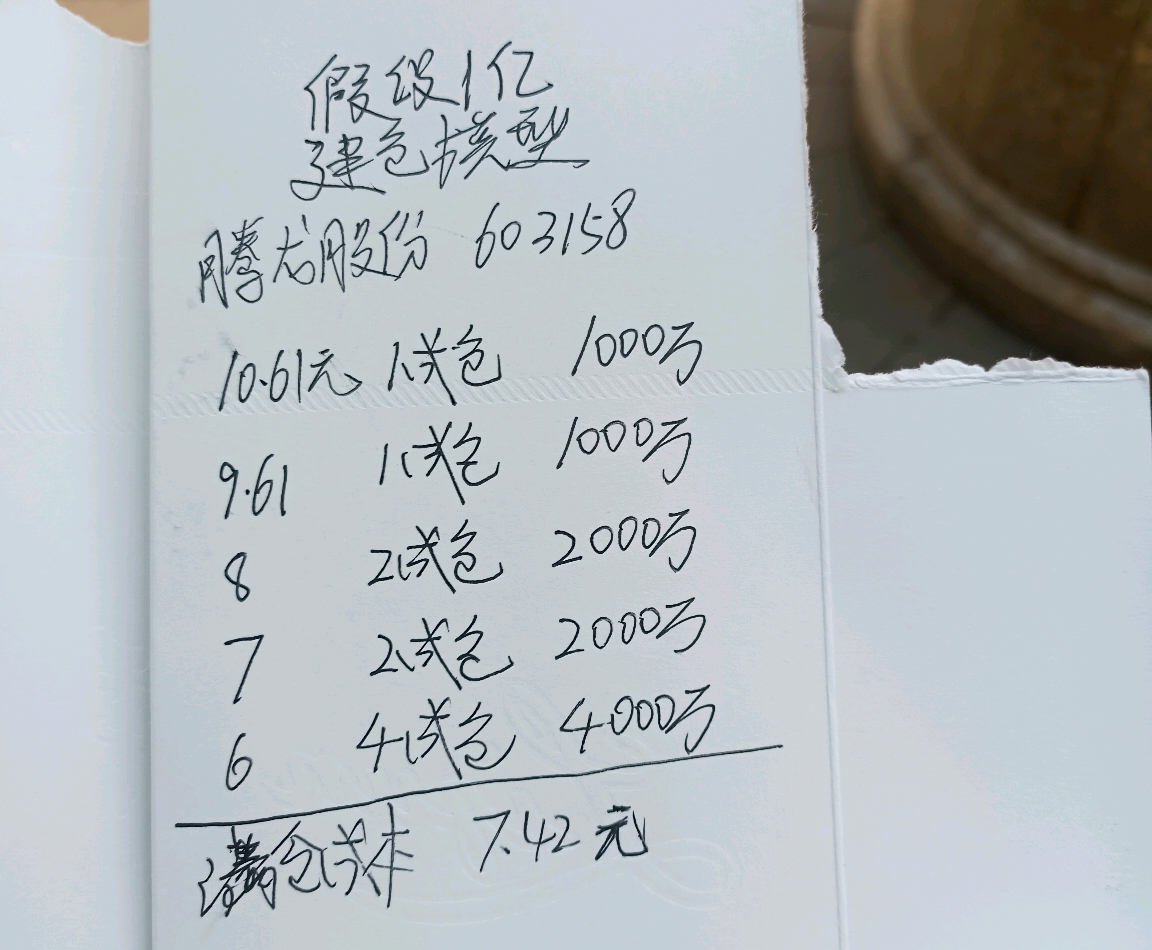 假设1亿
建仓模型
腾龙股份 603158
10.61元 1成仓 1000万
9.61 1成仓 1000万
8 2成仓 2000万
7 2成仓 2000万
6 4成仓 4000万
满仓成本 7.42元